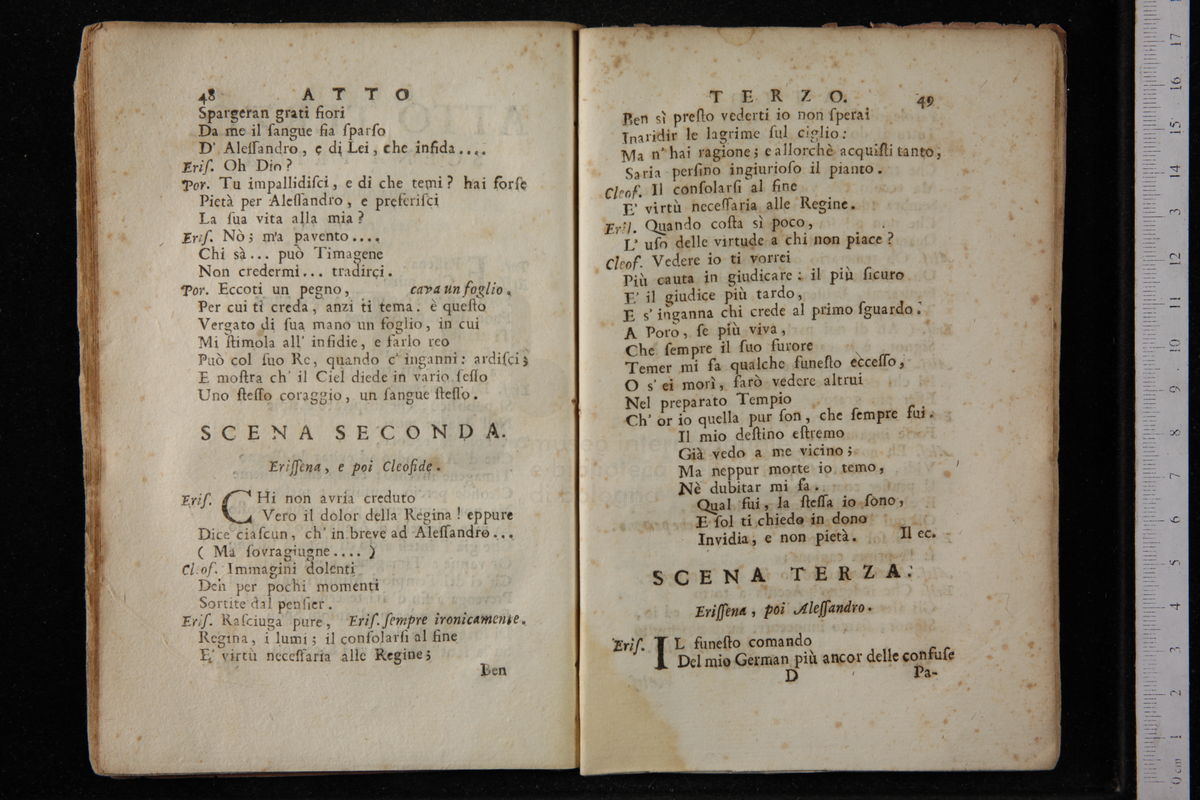 48 ATTO
Spargeran grati fiori
Da me il ſangue fia ſparſo
D' Aleſſandro, e di Lei, che infida....
Eriſ. Oh Dio?
Por. Tu impallidiſci, e di che temi? hai forſe
Pietà per Aleſſandro, e preferiſci
La ſua vita alla mia?
Eriſ. Nò; ma pavento....
Chi sà... può Timagene
Non credermi... tradirci.
Por. Eccoti un pegno, cava un foglio.
Per cui ti creda, anzi ti tema. è queſto
Vergato di ſua mano un foglio, in cui
Mi ſtimola all' inſidie, e farlo reo
Può col ſuo Re, quando c' inganni: ardiſci;
E moſtra ch' il Ciel diede in vario ſeſſo
Uno ſteſſo coraggio, un ſangue ſteſſo.
SCENA SECONDA.
Eriſſena, e poi Cleofide.
Eriſ. CHi non avria creduto
Vero il dolor della Regina! eppure
Dice ciaſcun, ch' in breve ad Aleſſandro...
( Ma ſovragiugne.... )
Cleof. Immagini dolenti
Deh per pochi momenti
Sortite dal penſier.
Eriſ. Raſciuga pure, Eriſ. ſempre ironicamente.
Regina, i lumi; il conſolarſi al fine
E' virtù neceſſaria alle Regine;
Ben
TERZO. 49
Ben sì preſto vederti io non ſperai
Inaridir le lagrime ſul ciglio:
Ma n' hai ragione; e allorchè acquiſti tanto,
Saria perſino ingiurioſo il pianto.
Cleof. Il conſolarſi al fine
E' virtù neceſſaria alle Regine.
Eriſ. Quando coſta sì poco,
L' uſo delle virtude a chi non piace?
Cleof. Vedere io ti vorrei
Più cauta in giudicare: il più ſicuro
E' il giudice più tardo,
E s' inganna chi crede al primo ſguardo.
A Poro, ſe più viva,
Che ſempre il ſuo furore
Temer mi fa qualche funeſto ecceſſo,
O s' ei morì, farò vedere altrui
Nel preparato Tempio
Ch' or io quella pur ſon, che ſempre fui.
Il mio deſtino eſtremo
Già vedo a me vicino;
Ma neppur morte io temo,
Nè dubitar mi fa.
Qual fui, la ſteſſa io ſono,
E ſol ti chiedo in dono
Invidia, e non pietà. Il ec.
SCENA TERZA.
Eriſſena, poi Aleſſandro.
Eriſ. IL funeſto comando
Del mio German più ancor delle confuſe
D Pa-